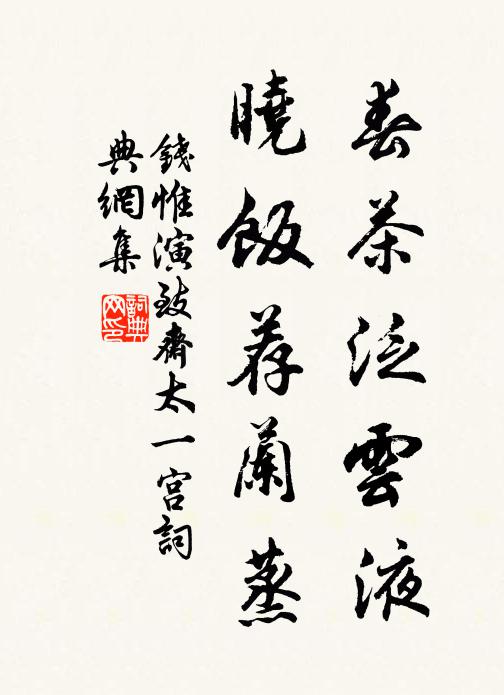 春茶泛雲液
曉飯荐蘭蒸
錢惟演致齋太一宮詞
典網集
詞典
网印